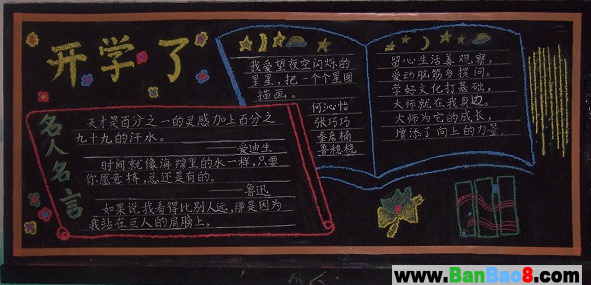 开学了
名人名言
天才是百分之一的灵感加上百分之
九十九的汗水。
爱迪生
时间就像海绵里的水一样,只要
你愿意挤,总还是有的。
鲁迅
如果说我看得比别人远,那是因为
我站在巨人的肩膀上。
我爱望夜空闪烁的
星星,把一个个星图
描画。
何沁怡
张巧巧
秦启楠
鲁穗穗
留心生活善观察,
爱动脑筋多提问。
学好文化打基础,
大师就在我身边。
大师为它的成长,
增添了向上的力量。
www.BanBao8.com